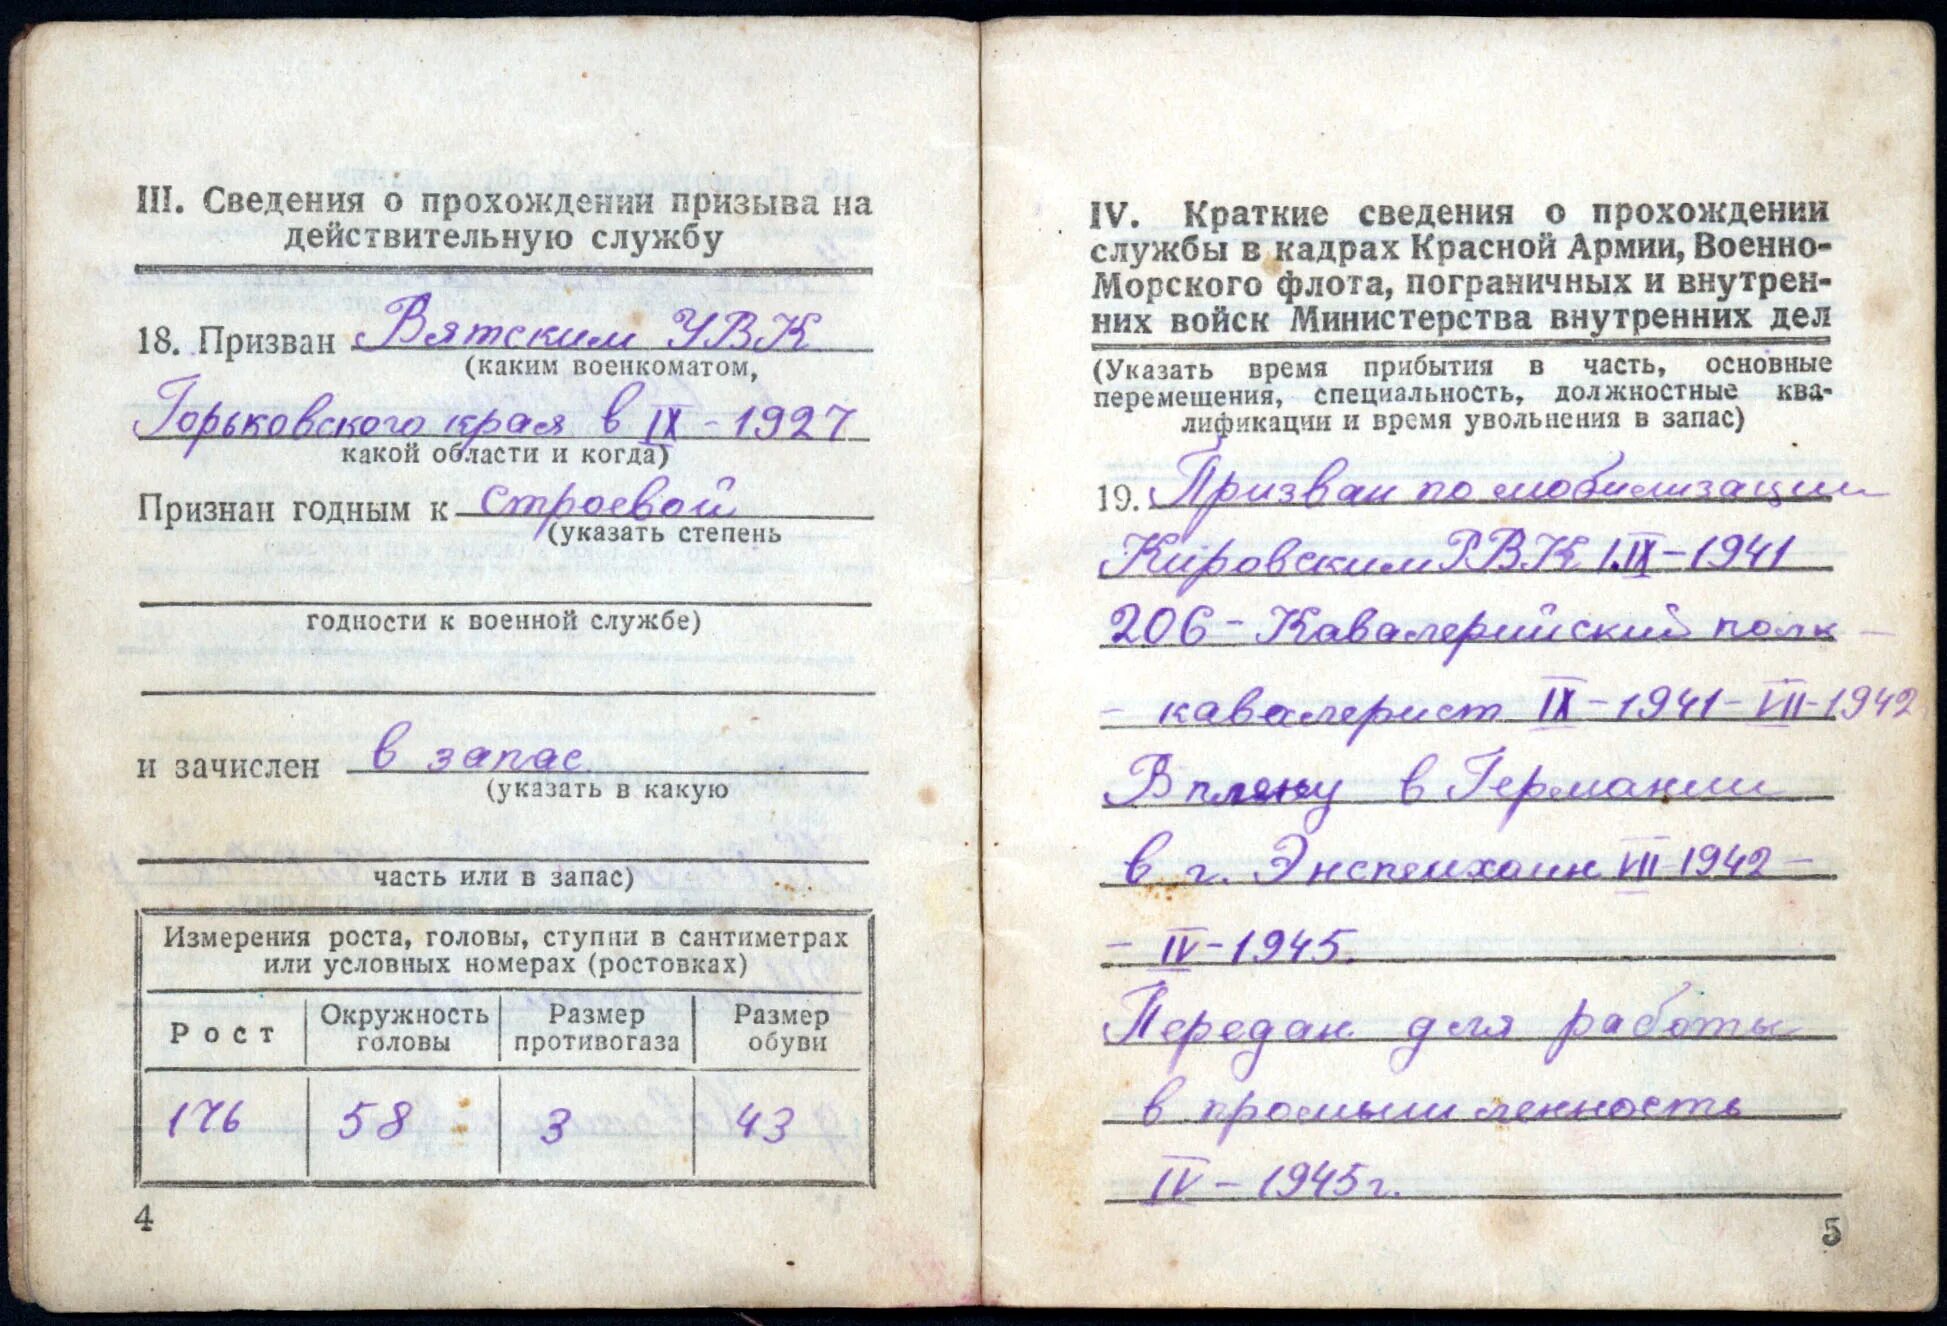 III. Сведения о прохождении призыва на
действительную службу
18. Призван Вятским УВК
(каким военкоматом,
Горьковского края в IX - 1927
какой области и когда)
Признан годным к строевой
(указать степень
годности к военной службе)
и зачислен в запас
(указать в какую
часть или в запас)
Измерения роста, головы, ступни в сантиметрах
или условных номерах (ростовках)
Рост
Окружность
головы
Размер
противогаза
Размер
обуви
176 58 3 43
4
IV. Краткие сведения о прохождении
службы в кадрах Красной Армии, Военно-
Морского флота, пограничных и внутрен-
них войск Министерства внутренних дел
(Указать время прибытия в часть, основные
перемещения, специальность, должностные ква-
лификации и время увольнения в запас)
19. Призван по мобилизации
Кировским РВК 1.IX-1941
206 - Кавалерийский полк -
- кавалерист IX - 1941 - VII - 1942
В плену в Германии
в г. Энспенхаин VII-1942 -
- IV - 1945.
Передан для работы
в промышленность
IV - 1945 г.
5